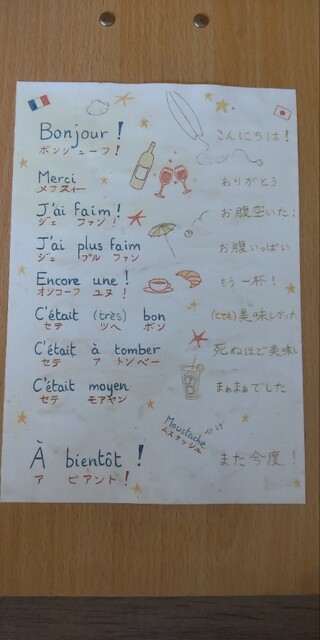 Bonjour ! こんにちは！
ボンジューフ！
Merci ありがとう
メフスィー
J'ai faim ! お腹空いた！
ジェ ファン！
J'ai plus faim お腹いっぱい
ジェ プル ファン
Encore une ! もう一杯！
オンコーフ ユヌ！
C'était (très) bon (とても)美味しかった
セテ ツヘ ボン
C'était à tomber 死ぬほど美味し
セテ ア トンベー
C'était moyen まぁまぁでした
セテ モアヤン
Moustache
ムスタッシュ
À bientôt ! また今度！
ア ビアント！